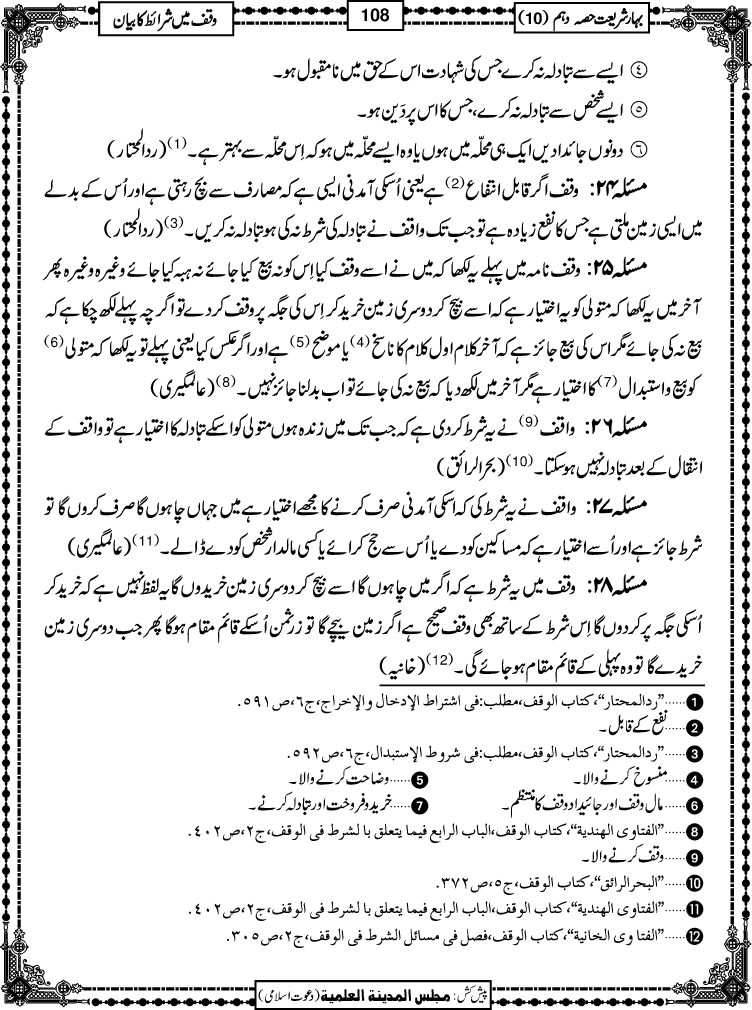 بہار شریعت حصہ دہم (10)
108
وقف میں شرائط کا بیان
④ ایسے سے تبادلہ نہ کرے جس کی شہادت اس کے حق میں نا مقبول ہو۔
⑤ ایسے شخص سے تبادلہ نہ کرے، جس کا اس پر دَین ہو۔
⑥ دونوں جائدادیں ایک ہی محلّہ میں ہوں یا وہ ایسے محلّہ میں ہو کہ اِس محلّہ سے بہتر ہے۔(1) (ردالمحتار)
مسئلہ ۲۴: وقف اگر قابل انتفاع(2) ہے یعنی اُسکی آمدنی ایسی ہے کہ مصارف سے بچ رہتی ہے اور اُس کے بدلے
میں ایسی زمین ملتی ہے جس کا نفع زیادہ ہے تو جب تک واقف نے تبادلہ کی شرط نہ کی ہو تبادلہ نہ کریں۔(3) (ردالمحتار)
مسئلہ ۲۵: وقف نامہ میں پہلے یہ لکھا کہ میں نے اسے وقف کیا اِس کو نہ بیع کیا جائے نہ ہبہ کیا جائے وغیرہ وغیرہ پھر
آخر میں یہ لکھا کہ متولی کو یہ اختیار ہے کہ اسے بیچ کر دوسری زمین خرید کر اِس کی جگہ پر وقف کر دے تو اگر چہ پہلے لکھ چکا ہے کہ
بیع نہ کی جائے مگر اس کی بیع جائز ہے کہ آخر کلام اول کلام کا ناسخ(4) یا موضح(5) ہے اور اگر عکس کیا یعنی پہلے تو یہ لکھا کہ متولی(6)
کو بیع و استبدال(7) کا اختیار ہے مگر آخر میں لکھ دیا کہ بیع نہ کی جائے تو اب بدلنا جائز نہیں۔(8) (عالمگیری)
مسئلہ ۲۶: واقف(9) نے یہ شرط کر دی ہے کہ جب تک میں زندہ ہوں متولی کو اسکے تبادلہ کا اختیار ہے تو واقف کے
انتقال کے بعد تبادلہ نہیں ہو سکتا۔(10) (بحرالرائق)
مسئلہ ۲۷: واقف نے یہ شرط کی کہ اسکی آمدنی صرف کرنے کا مجھے اختیار ہے میں جہاں چاہوں گا صرف کروں گا تو
شرط جائز ہے اور اُسے اختیار ہے کہ مساکین کو دے یا اُس سے حج کرائے یا کسی مالدار شخص کو دے ڈالے۔(11) (عالمگیری)
مسئلہ ۲۸: وقف میں یہ شرط ہے کہ اگر میں چاہوں گا اسے بیچ کر دوسری زمین خریدوں گا یہ لفظ نہیں ہے کہ خرید کر
اُسکی جگہ پر کر دوں گا اِس شرط کے ساتھ بھی وقف صحیح ہے اگر زمین بیچے گا تو زرِ ثمن اُسکے قائم مقام ہو گا پھر جب دوسری زمین
خریدے گا تو وہ پہلی کے قائم مقام ہو جائے گی۔(12) (خانیہ)
❶ ......"ردالمحتار"، کتاب الوقف، مطلب: فی اشتراط الإدخال والإخراج، ج۶، ص۵۹۱.
❷ ......نفع کے قابل۔
❸ ......"ردالمحتار"، کتاب الوقف، مطلب: فی شروط الإستبدال، ج۶، ص۵۹۲.
❹ ......منسوخ کرنے والا۔ ❺ ......وضاحت کرنے والا۔
❻ ......مال وقف اور جائیداد وقف کا منتظم۔ ❼ ......خرید و فروخت اور تبادلہ کرنے۔
❽ ......"الفتاوی الھندیة"، کتاب الوقف، الباب الرابع فیما یتعلق با لشرط فی الوقف، ج۲، ص۴۰۲.
❾ ......وقف کرنے والا۔
❿ ......"البحرالرائق"، کتاب الوقف، ج۵، ص۳۷۲.
⓫ ......"الفتاوی الھندیة"، کتاب الوقف، الباب الرابع فیما یتعلق با لشرط فی الوقف، ج۲، ص۴۰۲.
⓬ ......"الفتا وی الخانیة"، کتاب الوقف، فصل فی مسائل الشرط فی الوقف، ج۲، ص۳۰۵.
پیش کش: مجلس المدینة العلمیة (دعوت اسلامی)